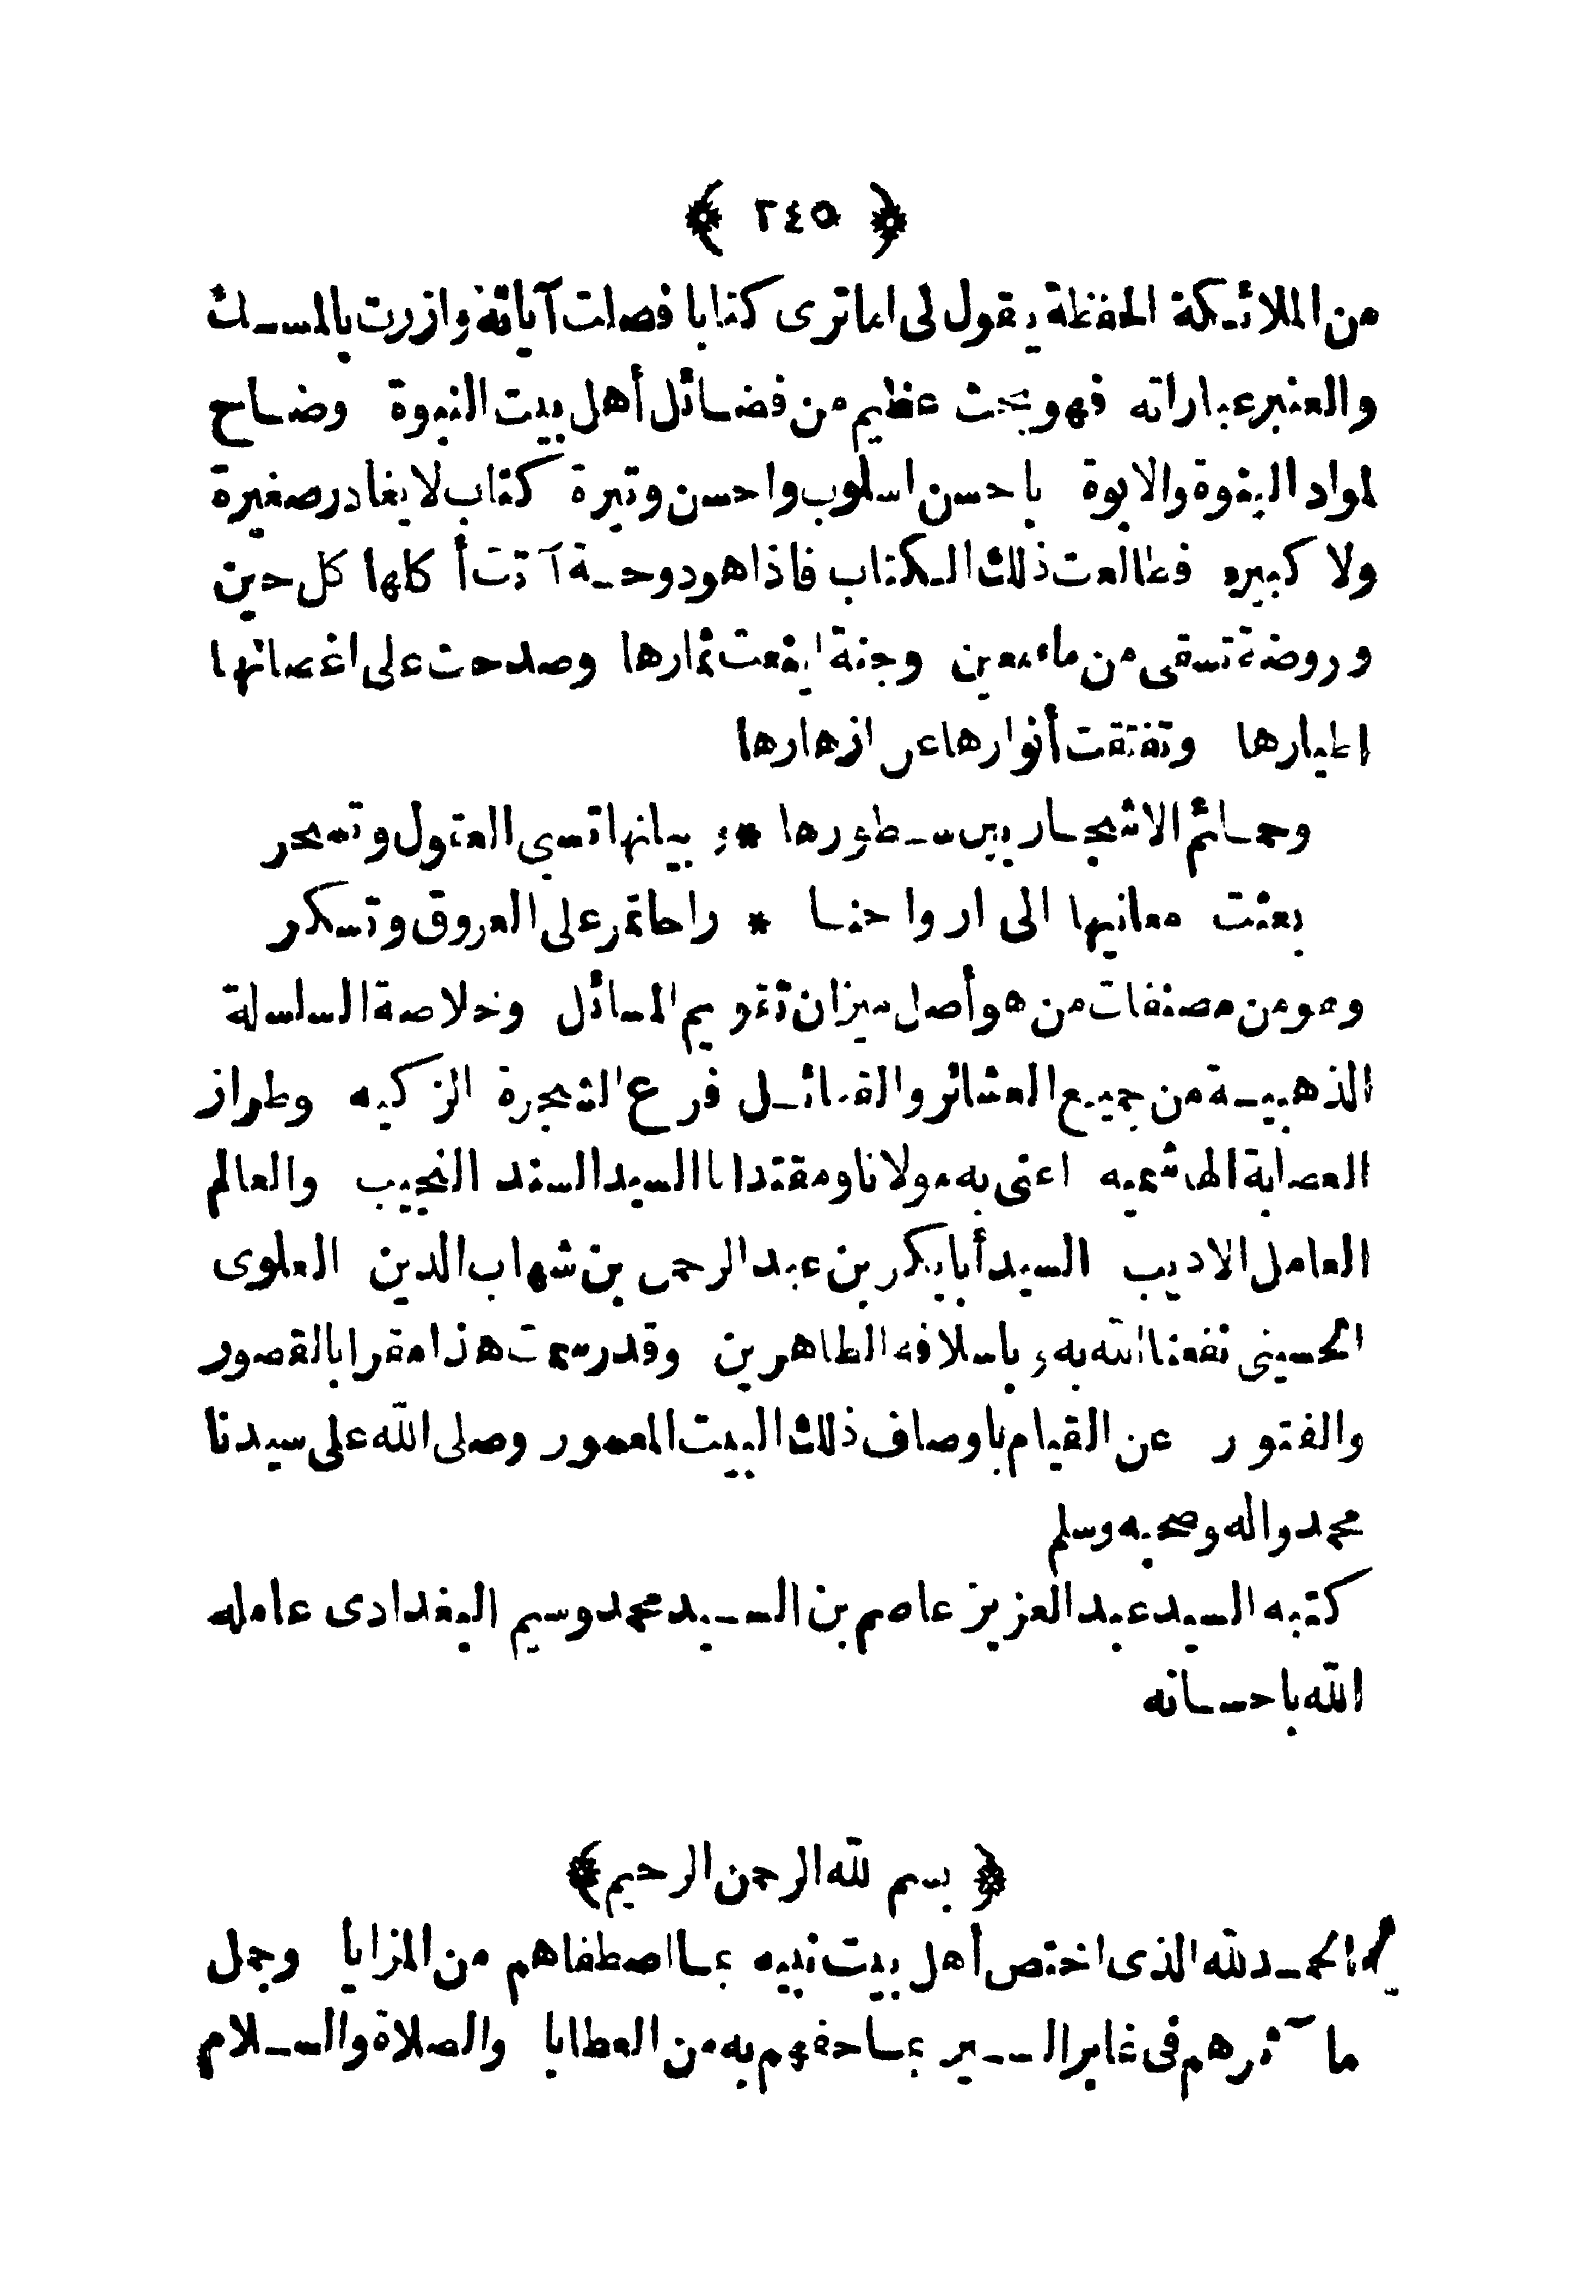 ﴿ ٢٤٥ ﴾
من الملائكة الحفظة يقول لى اما ترى كتابا فصلت آياته وازرت بالمسك
والعنبر عباراته فهو بحث عظيم من فضائل أهل بيت النبوة وضاح
لمواد البنوة والابوة باحسن اسلوب واحسن وتيرة كتاب لا يغادر صغيرة
ولا كبيره فطالعت ذلك الكتاب فاذا هو دوحة آتت أكلها كل حين
وروضة تسقى من ماء معين وجنة اينعت ثمارها وصدحت على اغصانها
اطيارها وتفتقت أنوارها عن ازهارها
وحمائم الاشجار بين سطورها * وبيانها تسبي العقول وتسحر
بعثت معانيها الى ارواحنا * راحا تمر على العروق وتسكر
وهو من مصنفات من هو أصل ميزان تقويم المسائل وخلاصة السلسلة
الذهبية من جميع العشائر والقبائل فرع الشجرة الزكيه وطراز
العصابة الهاشميه اعنى به مولانا ومقتدانا السيد السند النجيب والعالم
العامل الاديب السيد أبا بكر بن عبد الرحمن بن شهاب الدين العلوى
الحسينى نفعنا الله به وباسلافه الطاهرين وقد رسمت هذا مقرا بالقصور
والفتور عن القيام باوصاف ذلك البيت المعمور وصلى الله على سيدنا
محمد واله وصحبه وسلم
كتبه السيد عبد العزيز عاصم بن السيد محمد وسيم البغدادى عامله
الله باحسانه
﴿ بسم الله الرحمن الرحيم ﴾
الحمد لله الذى اختص أهل بيت نبيه بما اصطفاهم من المزايا وجمل
مآثرهم فى غابر السير بما حفهم به من العطايا والصلاة والسلام